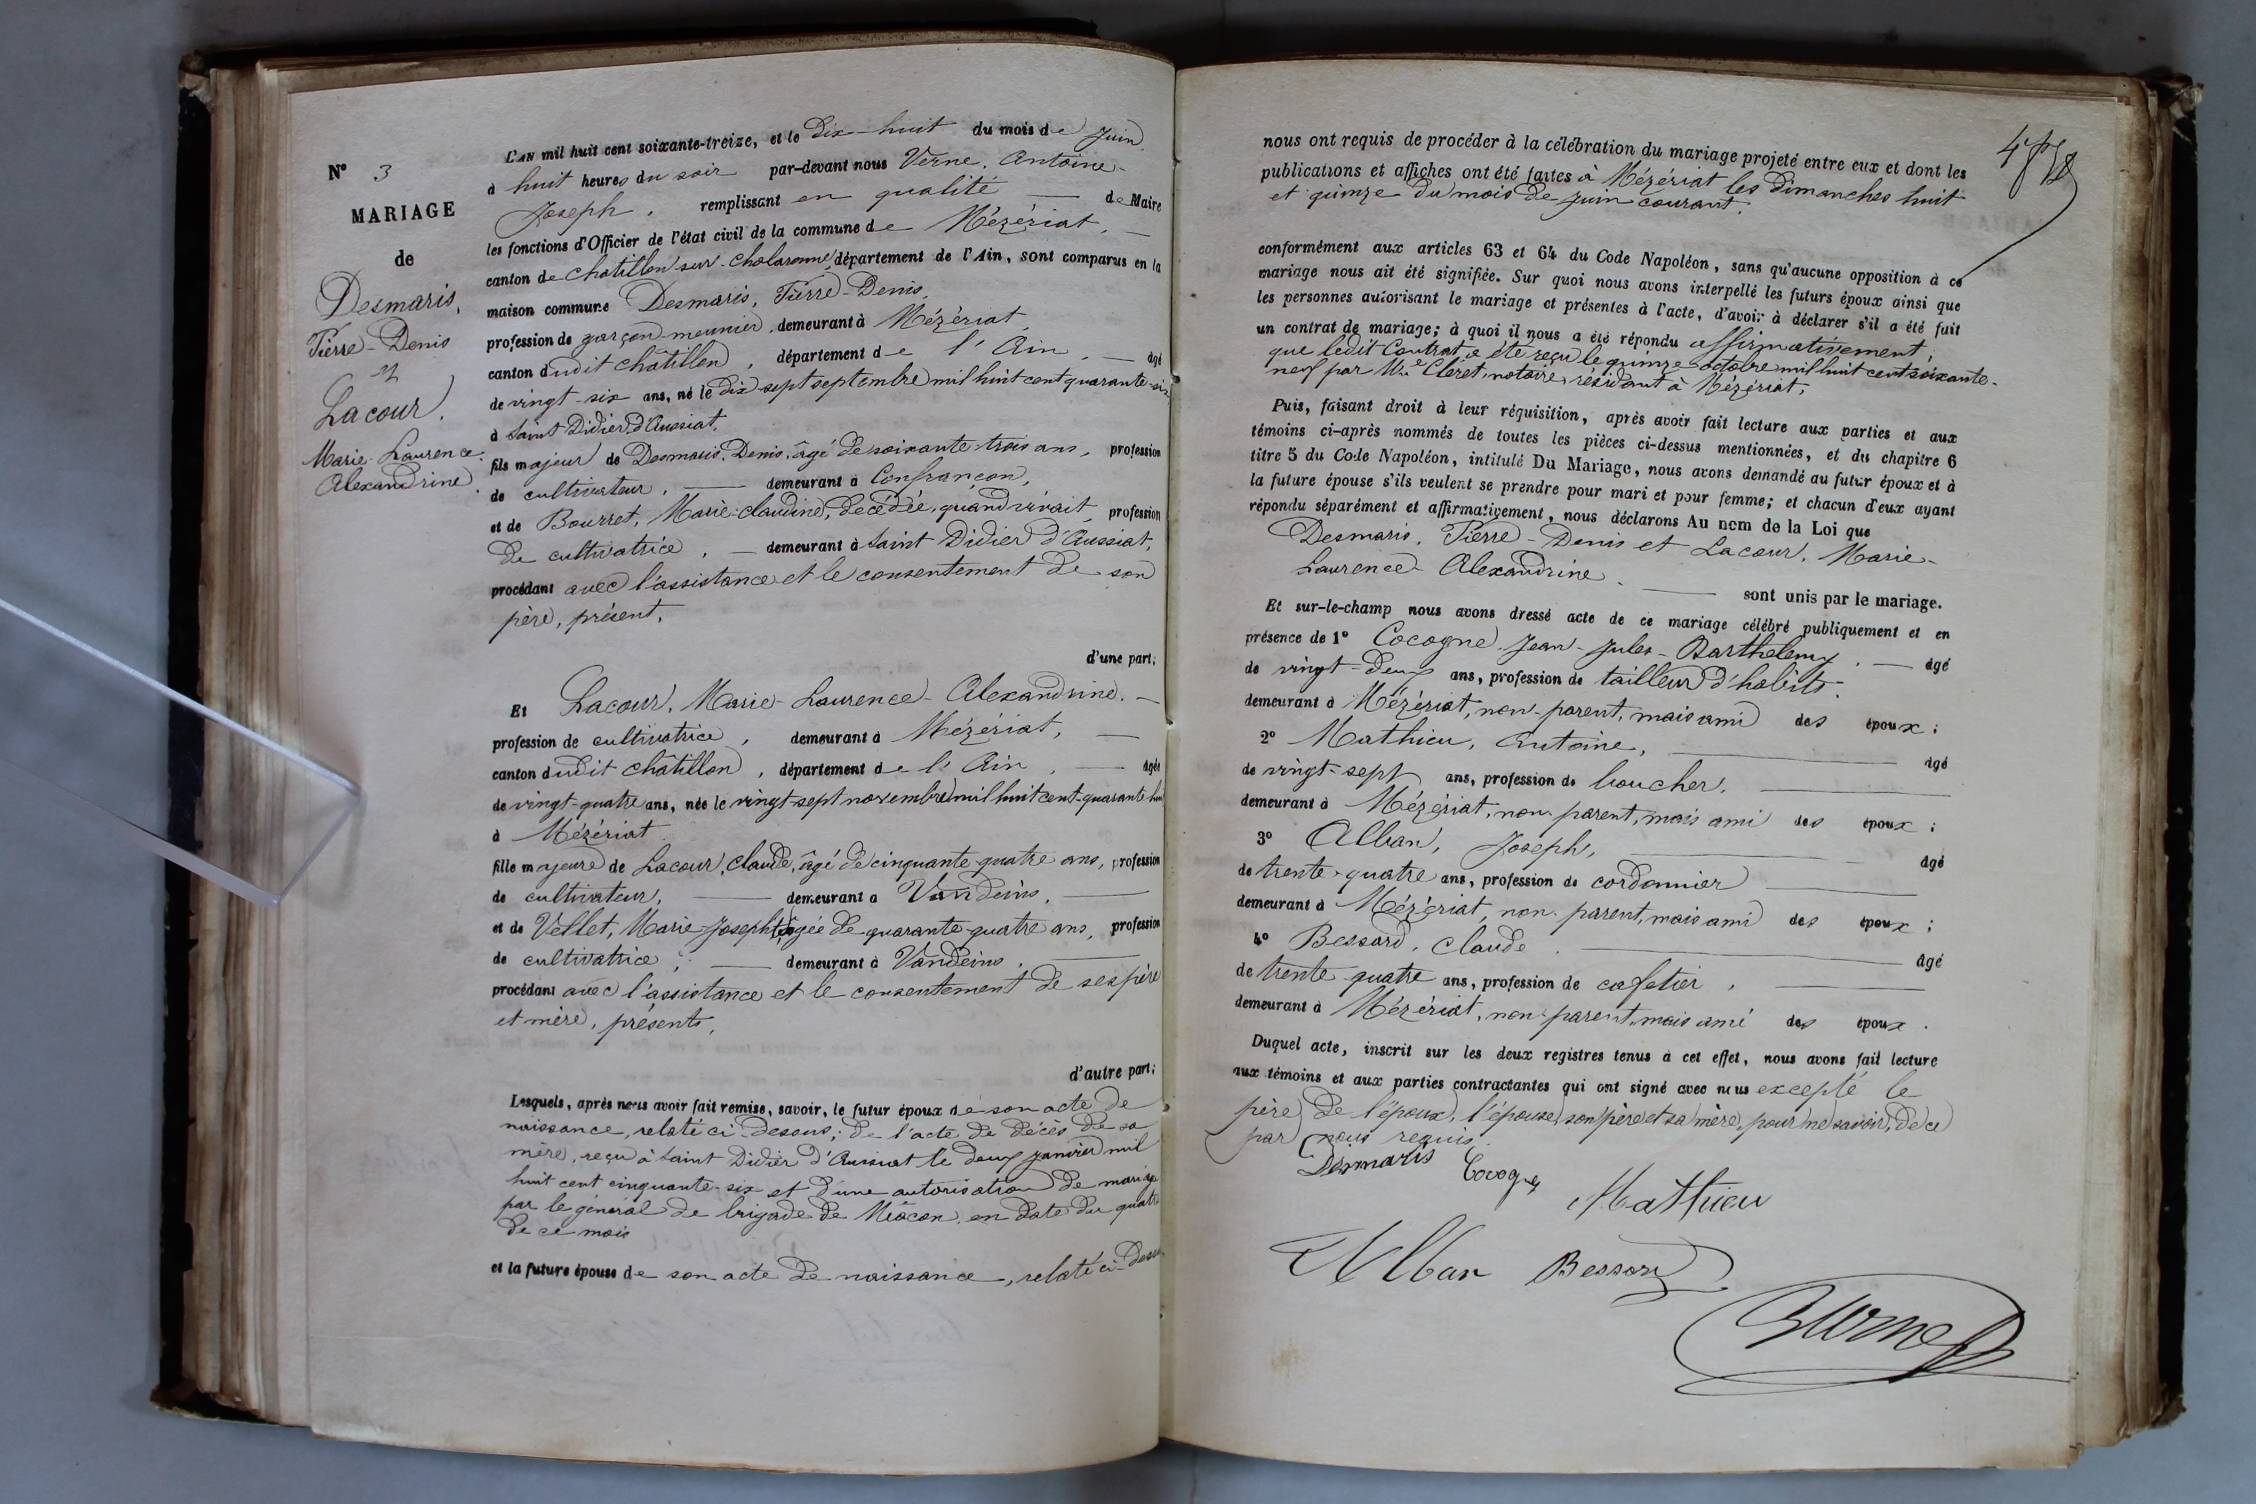 N° 3
MARIAGE
de
Desmaris,
Pierre-Denis
et
Lacour,
Marie-Laurence-
Alexandrine.
L'AN mil huit cent soixante-treize, et le Dix-huit du mois de Juin
à huit heures du soir par-devant nous Verne, Antoine-
Joseph, remplissant en qualité de Maire
les fonctions d'Officier de l'état civil de la commune de Mézériat,
canton de Chatillon sur Chalaronne département de l'Ain, sont comparus en la
maison commune Desmaris, Pierre-Denis,
profession de garçon meunier, demeurant à Mézériat,
canton dudit Châtillon, département de l'Ain, âgé
de vingt-six ans, né le dix-sept septembre mil huit cent quarante-six
à Saint Didier d'Aussiat,
fils majeur de Desmaris, Denis, âgé de soixante-trois ans, profession
de cultivateur, demeurant à Confrançon,
et de Bourret, Marie-Claudine, décédée, quand vivait profession
de cultivatrice, demeurant à Saint Didier d'Aussiat,
procédant avec l'assistance et le consentement de son
père, présent,
d'une part;
Et Lacour, Marie-Laurence-Alexandrine.
profession de cultivatrice, demeurant à Mézériat,
canton dudit Châtillon, département de l'Ain, âgée
de vingt-quatre ans, née le vingt-sept novembre mil huit cent quarante huit
à Mézériat
fille majeure de Lacour, Claude, âgé de cinquante-quatre ans, profession
de cultivateur, demeurant à Vandeins,
et de Vellet, Marie-Josephte, âgée de quarante-quatre ans, profession
de cultivatrice, demeurant à Vandeins,
procédant avec l'assistance et le consentement de ses père
et mère, présents,
d'autre part;
Lesquels, après nous avoir fait remise, savoir, le futur époux de son acte de
naissance, relaté ci-dessus; de l'acte de décès de sa
mère, reçu à Saint Didier d'Aussiat le deux janvier mil
huit cent cinquante-six et d'une autorisation de mariage
par le général de brigade de Mâcon, en date du quatre
de ce mois
et la future épouse de son acte de naissance, relaté ci-dessus
nous ont requis de procéder à la célébration du mariage projeté entre eux et dont les
publications et affiches ont été faites à Mézériat les Dimanches huit
et quinze du mois de juin courant.
conformément aux articles 63 et 64 du Code Napoléon, sans qu'aucune opposition à ce
mariage nous ait été signifiée. Sur quoi nous avons interpellé les futurs époux ainsi que
les personnes autorisant le mariage et présentes à l'acte, d'avoir à déclarer s'il a été fait
un contrat de mariage; à quoi il nous a été répondu affirmativement,
que ledit Contrat a été reçu le quinze octobre mil huit cent soixante-
neuf par Me Cleret, notaire résidant à Mézériat,
Puis, faisant droit à leur réquisition, après avoir fait lecture aux parties et aux
témoins ci-après nommés de toutes les pièces ci-dessus mentionnées, et du chapitre 6
titre 5 du Code Napoléon, intitulé Du Mariage, nous avons demandé au futur époux et à
la future épouse s'ils veulent se prendre pour mari et pour femme; et chacun d'eux ayant
répondu séparément et affirmativement, nous déclarons Au nom de la Loi que
Desmaris, Pierre-Denis et Lacour, Marie-
Laurence-Alexandrine.
sont unis par le mariage.
Et sur-le-champ nous avons dressé acte de ce mariage célébré publiquement et en
présence de 1° Cocogne, Jean-Jules-Barthelemy, âgé
de vingt-deux ans, profession de tailleur d'habits,
demeurant à Mézériat, non-parent, mais ami des époux;
2° Mathieu, Antoine, âgé
de vingt-sept ans, profession de boucher,
demeurant à Mézériat, non-parent, mais ami des époux;
3° Alban, Joseph, âgé
de trente-quatre ans, profession de cordonnier
demeurant à Mézériat, non-parent, mais ami des époux;
4° Bessard, Claude. âgé
de trente-quatre ans, profession de cafetier,
demeurant à Mézériat, non-parent, mais ami des époux.
Duquel acte, inscrit sur les deux registres tenus à cet effet, nous avons fait lecture
aux témoins et aux parties contractantes qui ont signé avec nous excepté le
père de l'époux, l'épouse, son père et sa mère, pour ne savoir, de ce
par nous requis.
Desmaris Cocogne
Mathieu
Alban Bessard
Verne